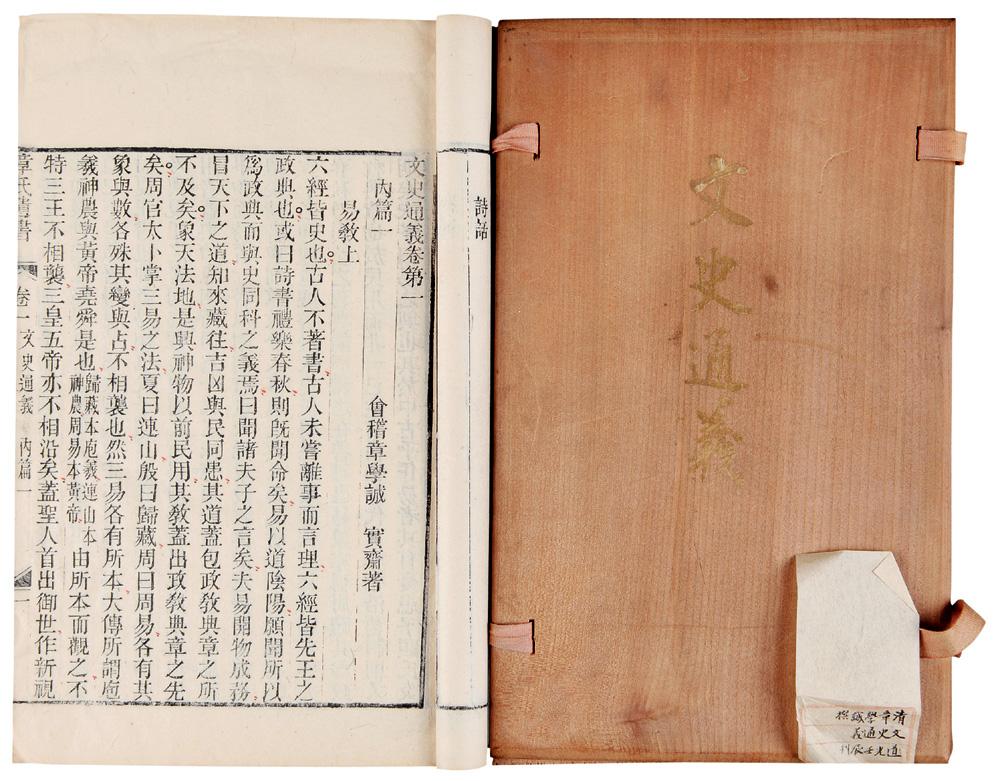 文史通義
清章學誠撰
文史通義
道光壬辰刊
詩話
文史通義卷第一
內篇一
會稽章學誠 實齋著
易教上
六經皆史也古人不著書古人未嘗離事而言理六經皆先王之
政典也或曰詩書禮樂春秋則既聞命矣易以道陰陽願聞所以
爲政典而與史同科之義焉曰聞諸夫子之言矣夫易開物成務
冒天下之道知來藏往吉凶與民同患其道蓋包政教典章之所
不及矣象天法地是興神物以前民用其教蓋出政教典章之先
矣周官太卜掌三易之法夏曰連山殷曰歸藏周曰周易各有其
象與數各殊其變與占不相襲也然三易各有所本大傳所謂庖
羲神農與黃帝堯舜是也歸藏本庖羲連山本神農周易本黃帝由所本而觀之不
特三王不相襲三皇五帝亦不相沿矣蓋聖人首出御世作新視
章氏遺書 卷一 文史通義 內篇一 一